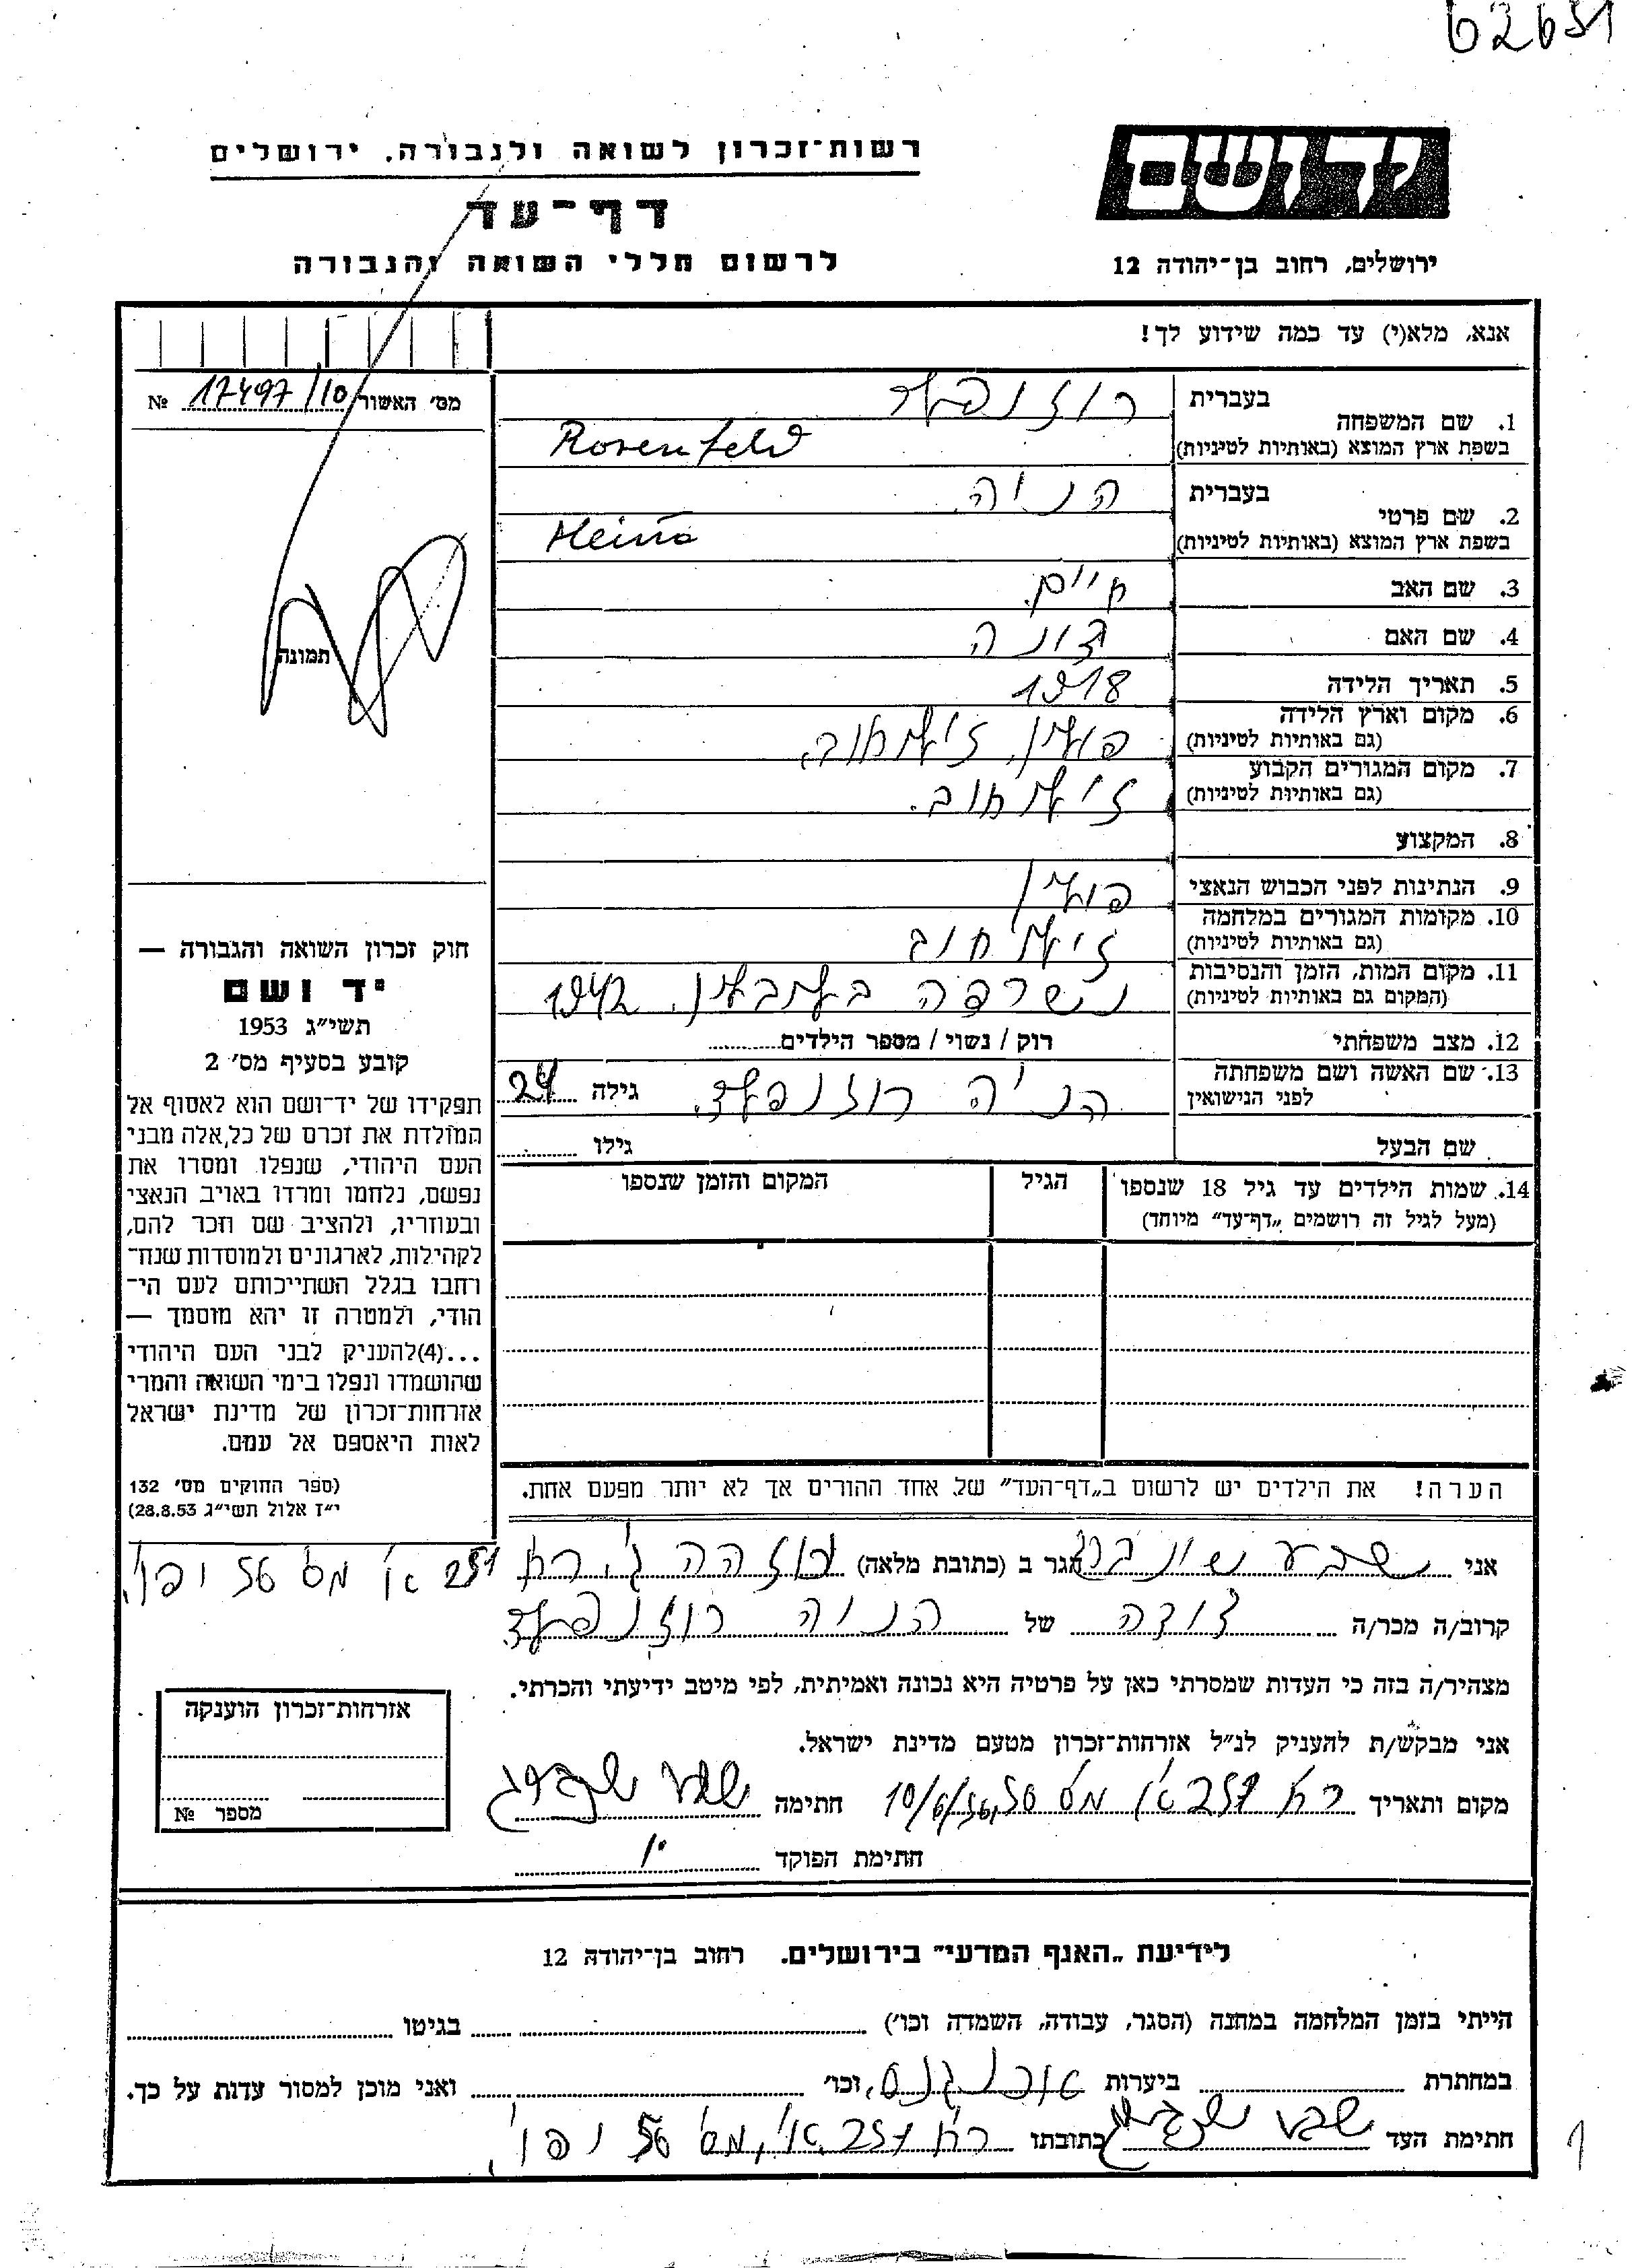 62651
רשות־זכרון לשואה ולגבורה, ירושלים
יד ושם
דף־עד
לרשום חללי השואה והגבורה
ירושלים, רחוב בן־יהודה 12
אנא, מלא(י) עד כמה שידוע לך!
מס׳ האשור 17497/10 №
1. שם המשפחה בעברית רוזנפלד
בשפת ארץ המוצא (באותיות לטיניות) Rosenfeld
2. שם פרטי בעברית הניה
בשפת ארץ המוצא (באותיות לטיניות)
3. שם האב חיים
4. שם האם
5. תאריך הלידה 1918
6. מקום וארץ הלידה
(גם באותיות לטיניות) פולין,
7. מקום המגורים הקבוע
(גם באותיות לטיניות)
8. המקצוע
9. הנתינות לפני הכבוש הנאצי פולין
10. מקומות המגורים במלחמה
(גם באותיות לטיניות)
11. מקום המות, הזמן והנסיבות
(המקום גם באותיות לטיניות) נשרפה 1942
12. מצב משפחתי רוק / נשוי / מספר הילדים
13. שם האשה ושם משפחתה
לפני הנישואין הניה רוזנפלד גילה 24
שם הבעל גילו
14. שמות הילדים עד גיל 18 שנספו
(מעל לגיל זה רושמים „דף־עד” מיוחד)
הגיל
המקום והזמן שנספו
תמונה
חוק זכרון השואה והגבורה —
יד ושם
תשי״ג 1953
קובע בסעיף מס׳ 2
תפקידו של יד־ושם הוא לאסוף אל
המולדת את זכרם של כל אלה מבני
העם היהודי, שנפלו ומסרו את
נפשם, נלחמו ומרדו באויב הנאצי
ובעוזריו, ולהציב שם וזכר להם,
לקהילות, לארגונים ולמוסדות שנח־
רחבו בגלל השתייכותם לעם הי־
הודי, ולמטרה זו יהא מוסמך —
...(4)להעניק לבני העם היהודי
שהושמדו ונפלו בימי השואה והמרי
אזרחות־זכרון של מדינת ישראל
לאות היאספם אל עמם.
(ספר החוקים מס׳ 132
י״ז אלול תשי״ג 28.8.53)
הערה! את הילדים יש לרשום ב„דף־העד” של אחד ההורים אך לא יותר מפעם אחת.
אני שבע הגר ב (כתובת מלאה) רח 251 מס 56 יפו
קרוב/ה מכר/ה דודה של הניה רוזנפלד
מצהיר/ה בזה כי העדות שמסרתי כאן על פרטיה היא נכונה ואמיתית, לפי מיטב ידיעתי והכרתי.
אני מבקש/ת להעניק לנ״ל אזרחות־זכרון מטעם מדינת ישראל.
מקום ותאריך רח 251 מס 56, 10/6/56 חתימה
חתימת הפוקד
אזרחות־זכרון הוענקה
מספר №
לידיעת „האגף המדעי” בירושלים. רחוב בן־יהודה 12
הייתי בזמן המלחמה במחנה (הסגר, עבודה, השמדה וכו׳) בגיטו
במחתרת ביערות וכו׳ ואני מוכן למסור עדות על כך.
חתימת העד כתובתו רח 251 מס 56 יפו
1